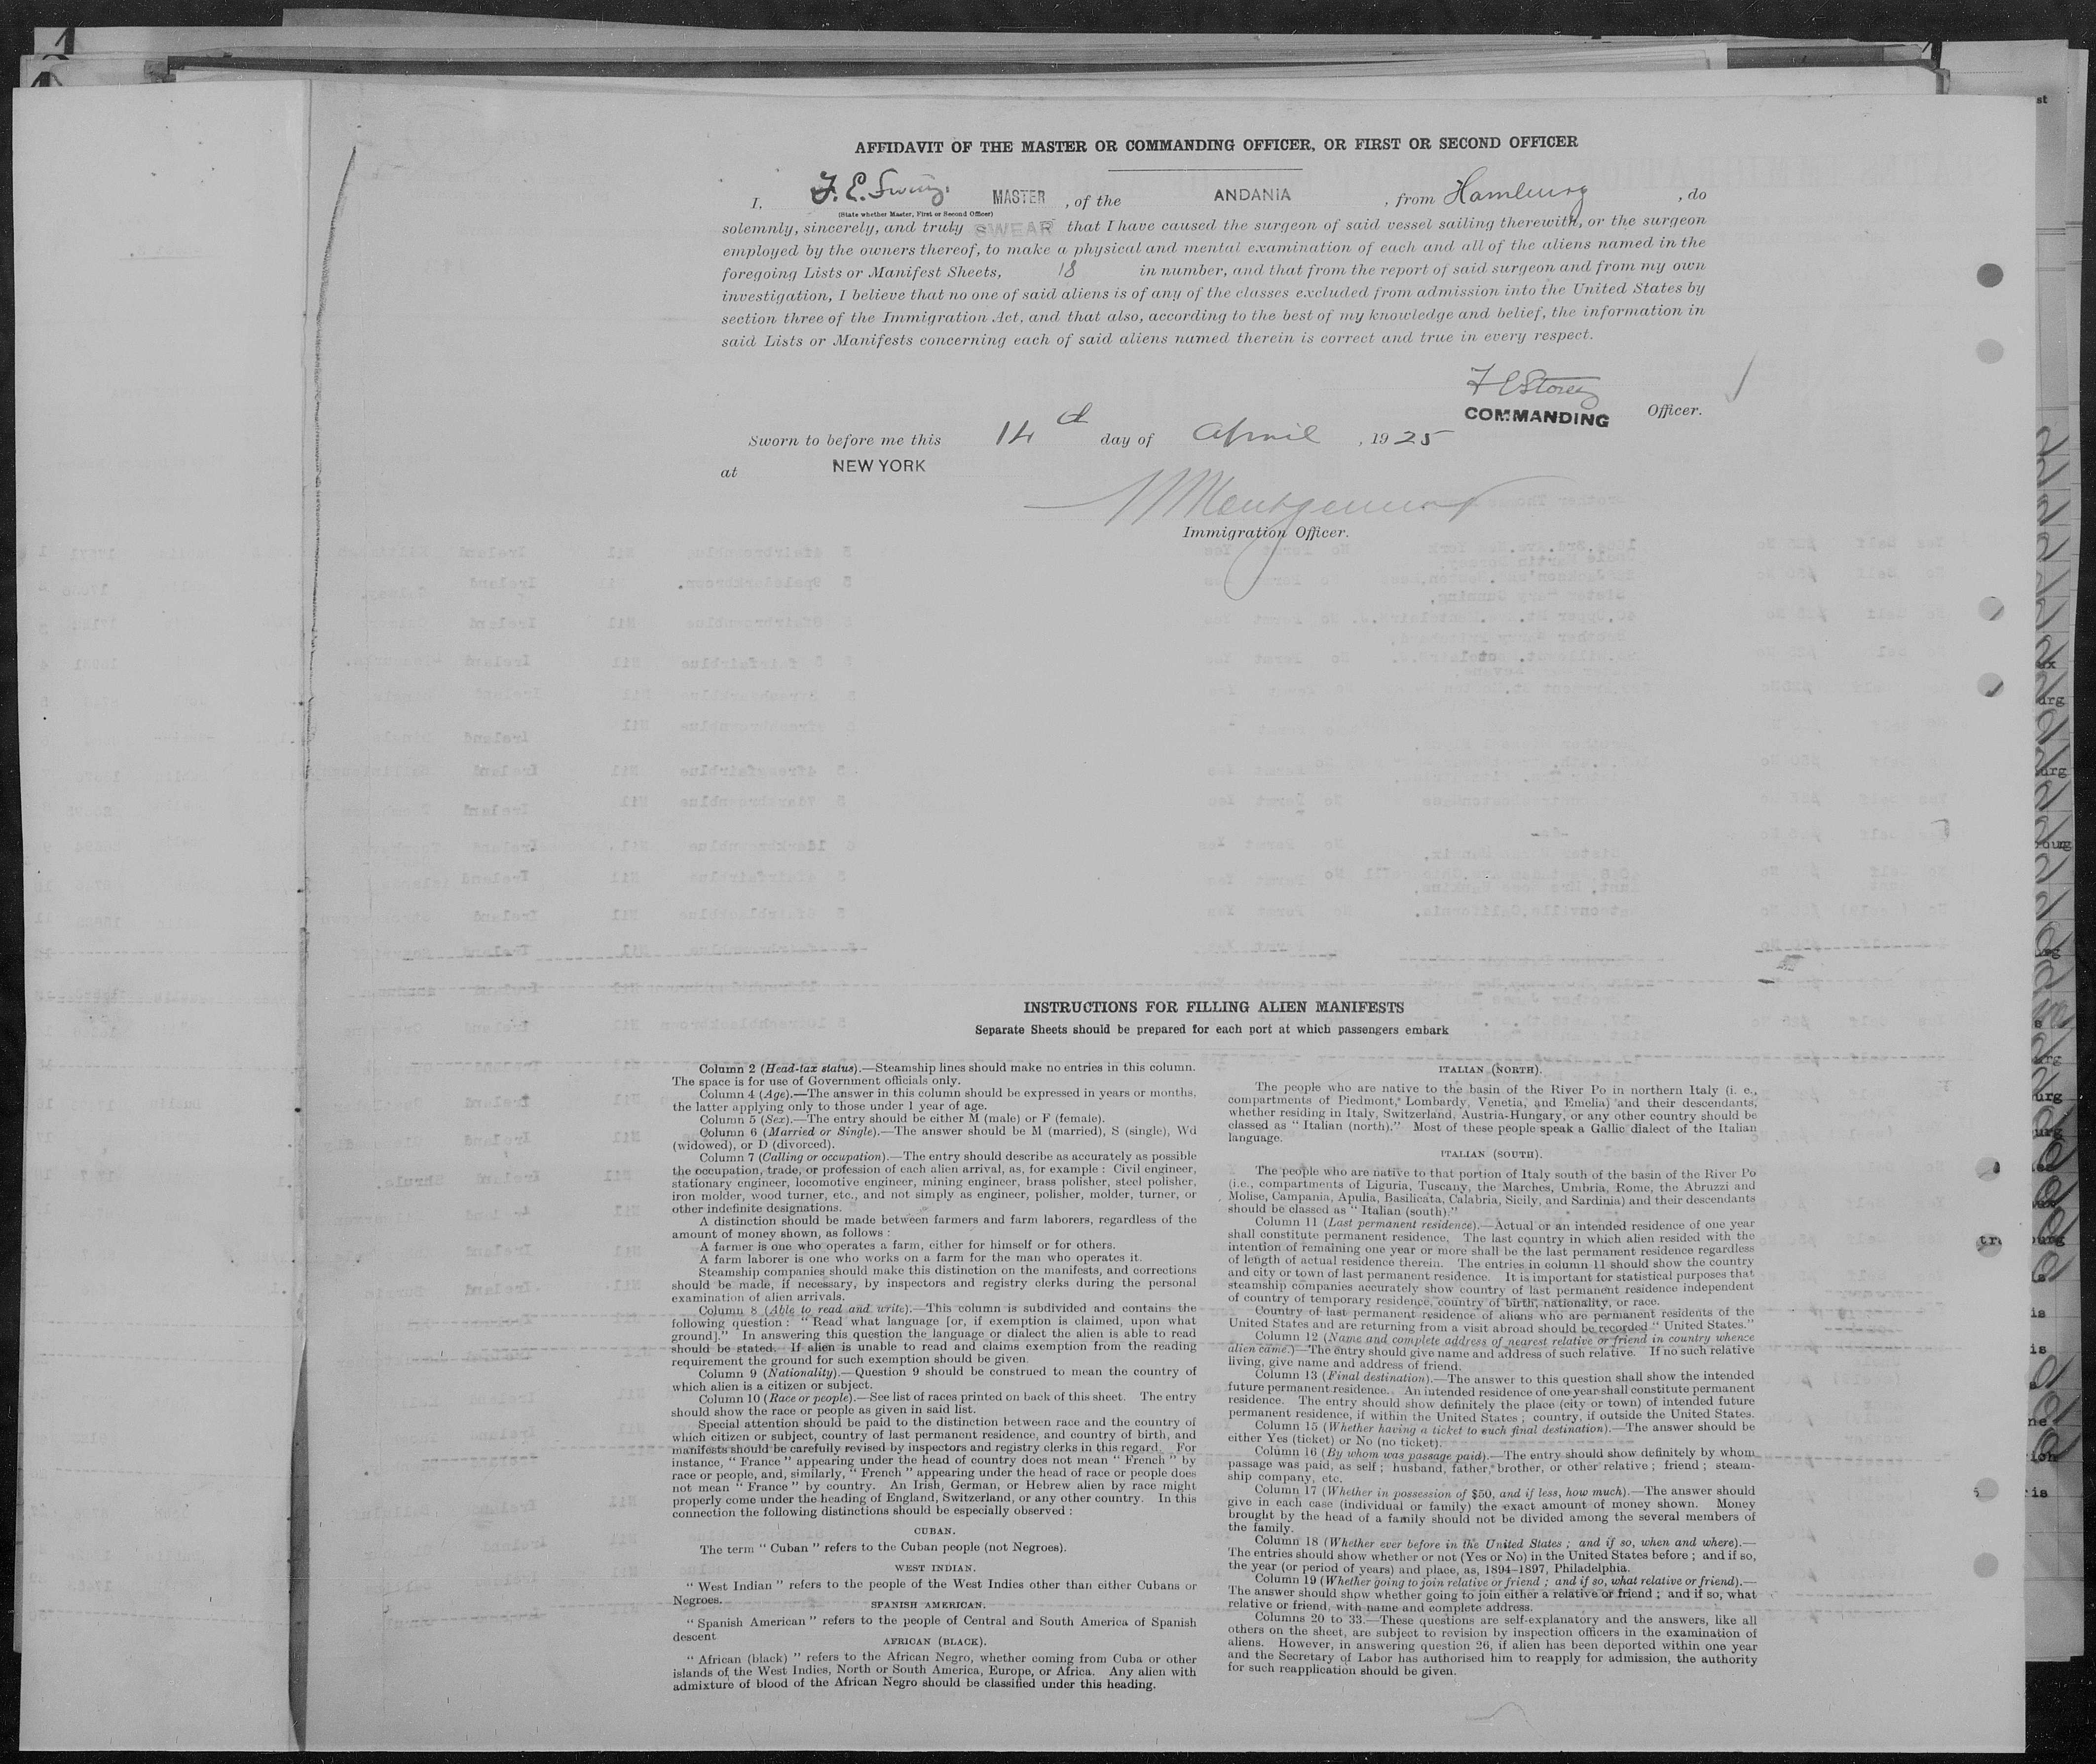 AFFIDAVIT OF THE MASTER OR COMMANDING OFFICER, OR FIRST OR SECOND OFFICER
I, F. E. MASTER, of the ANDANIA, from Hamburg, do
(State whether Master, First or Second Officer)
solemnly, sincerely, and truly SWEAR that I have caused the surgeon of said vessel sailing therewith, or the surgeon
employed by the owners thereof, to make a physical and mental examination of each and all of the aliens named in the
foregoing Lists or Manifest Sheets, 18 in number, and that from the report of said surgeon and from my own
investigation, I believe that no one of said aliens is of any of the classes excluded from admission into the United States by
section three of the Immigration Act, and that also, according to the best of my knowledge and belief, the information in
said Lists or Manifests concerning each of said aliens named therein is correct and true in every respect.
COMMANDING Officer.
Sworn to before me this 14 d day of April, 1925
at NEW YORK
Montgomery
Immigration Officer.
INSTRUCTIONS FOR FILLING ALIEN MANIFESTS
Separate Sheets should be prepared for each port at which passengers embark
Column 2 (Head-tax status).—Steamship lines should make no entries in this column.
The space is for use of Government officials only.
Column 4 (Age).—The answer in this column should be expressed in years or months,
the latter applying only to those under 1 year of age.
Column 5 (Sex).—The entry should be either M (male) or F (female).
Column 6 (Married or Single).—The answer should be M (married), S (single), Wd
(widowed), or D (divorced).
Column 7 (Calling or occupation).—The entry should describe as accurately as possible
the occupation, trade, or profession of each alien arrival, as, for example : Civil engineer,
stationary engineer, locomotive engineer, mining engineer, brass polisher, steel polisher,
iron molder, wood turner, etc., and not simply as engineer, polisher, molder, turner, or
other indefinite designations.
A distinction should be made between farmers and farm laborers, regardless of the
amount of money shown, as follows :
A farmer is one who operates a farm, either for himself or for others.
A farm laborer is one who works on a farm for the man who operates it.
Steamship companies should make this distinction on the manifests, and corrections
should be made, if necessary, by inspectors and registry clerks during the personal
examination of alien arrivals.
Column 8 (Able to read and write).—This column is subdivided and contains the
following question : “ Read what language [or, if exemption is claimed, upon what
ground].” In answering this question the language or dialect the alien is able to read
should be stated. If alien is unable to read and claims exemption from the reading
requirement the ground for such exemption should be given.
Column 9 (Nationality).—Question 9 should be construed to mean the country of
which alien is a citizen or subject.
Column 10 (Race or people).—See list of races printed on back of this sheet. The entry
should show the race or people as given in said list.
Special attention should be paid to the distinction between race and the country of
which citizen or subject, country of last permanent residence, and country of birth, and
manifests should be carefully revised by inspectors and registry clerks in this regard. For
instance, “ France ” appearing under the head of country does not mean “ French ” by
race or people, and, similarly, “ French ” appearing under the head of race or people does
not mean “ France ” by country. An Irish, German, or Hebrew alien by race might
properly come under the heading of England, Switzerland, or any other country. In this
connection the following distinctions should be especially observed :
CUBAN.
The term “ Cuban ” refers to the Cuban people (not Negroes).
WEST INDIAN.
“ West Indian ” refers to the people of the West Indies other than either Cubans or
Negroes.
SPANISH AMERICAN.
“ Spanish American ” refers to the people of Central and South America of Spanish
descent
AFRICAN (BLACK).
“ African (black) ” refers to the African Negro, whether coming from Cuba or other
islands of the West Indies, North or South America, Europe, or Africa. Any alien with
admixture of blood of the African Negro should be classified under this heading.
ITALIAN (NORTH).
The people who are native to the basin of the River Po in northern Italy (i. e.,
compartments of Piedmont, Lombardy, Venetia, and Emelia) and their descendants,
whether residing in Italy, Switzerland, Austria-Hungary, or any other country should be
classed as “ Italian (north).” Most of these people speak a Gallic dialect of the Italian
language.
ITALIAN (SOUTH).
The people who are native to that portion of Italy south of the basin of the River Po
(i.e., compartments of Liguria, Tuscany, the Marches, Umbria, Rome, the Abruzzi and
Molise, Campania, Apulia, Basilicata, Calabria, Sicily, and Sardinia) and their descendants
should be classed as “ Italian (south).”
Column 11 (Last permanent residence).—Actual or an intended residence of one year
shall constitute permanent residence. The last country in which alien resided with the
intention of remaining one year or more shall be the last permanent residence regardless
of length of actual residence therein. The entries in column 11 should show the country
and city or town of last permanent residence. It is important for statistical purposes that
steamship companies accurately show country of last permanent residence independent
of country of temporary residence, country of birth, nationality, or race.
Country of last permanent residence of aliens who are permanent residents of the
United States and are returning from a visit abroad should be recorded “ United States.”
Column 12 (Name and complete address of nearest relative or friend in country whence
alien came.)—The entry should give name and address of such relative. If no such relative
living, give name and address of friend.
Column 13 (Final destination).—The answer to this question shall show the intended
future permanent residence. An intended residence of one year shall constitute permanent
residence. The entry should show definitely the place (city or town) of intended future
permanent residence, if within the United States ; country, if outside the United States.
Column 15 (Whether having a ticket to such final destination).—The answer should be
either Yes (ticket) or No (no ticket).
Column 16 (By whom was passage paid).—The entry should show definitely by whom
passage was paid, as self ; husband, father, brother, or other relative ; friend ; steam-
ship company, etc.
Column 17 (Whether in possession of $50, and if less, how much).—The answer should
give in each case (individual or family) the exact amount of money shown. Money
brought by the head of a family should not be divided among the several members of
the family.
Column 18 (Whether ever before in the United States ; and if so, when and where).—
The entries should show whether or not (Yes or No) in the United States before ; and if so,
the year (or period of years) and place, as, 1894–1897, Philadelphia.
Column 19 (Whether going to join relative or friend ; and if so, what relative or friend).—
The answer should show whether going to join either a relative or friend ; and if so, what
relative or friend, with name and complete address.
Columns 20 to 33.—These questions are self-explanatory and the answers, like all
others on the sheet, are subject to revision by inspection officers in the examination of
aliens. However, in answering question 26, if alien has been deported within one year
and the Secretary of Labor has authorised him to reapply for admission, the authority
for such reapplication should be given.